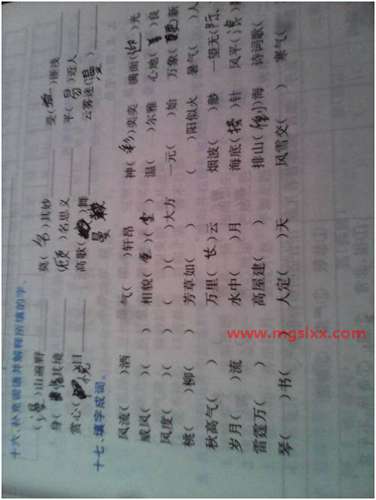 十六、补充词语并解释所填的字。
( )山遍野 莫(名)其妙 受( )匪浅
身(临)其境 (顾)名思义 平(易)近人
赏心(悦)目 高歌( )舞 曼 云雾迷(漫)
十七、填字成词。
风流( )洒 气( )轩昂 神(彩)奕奕 满面(红)光
威风( )( ) 相貌( )(堂) 温( )尔雅 心地(善)良
风度( )( ) ( )( )大方 一元( )始 万象( )新
桃( )柳( ) 芳草如( ) ( )阳似火 暑气( )人
秋高气( ) 万里(长)云 烟波( )渺 一望无(际)
岁月( )流 水中( )月 海底(捞)针 风平(浪)
雷霆万( ) 高屋建( ) 排山(倒)海 诗词歌(
琴( )书( ) 人定( )天 风雪交( ) 寒气(
www.mgsixx.com